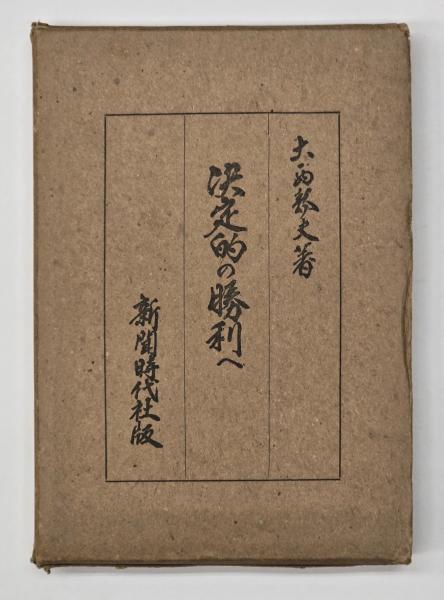 大西敬夫著
決定的の勝利へ
新聞時代社版